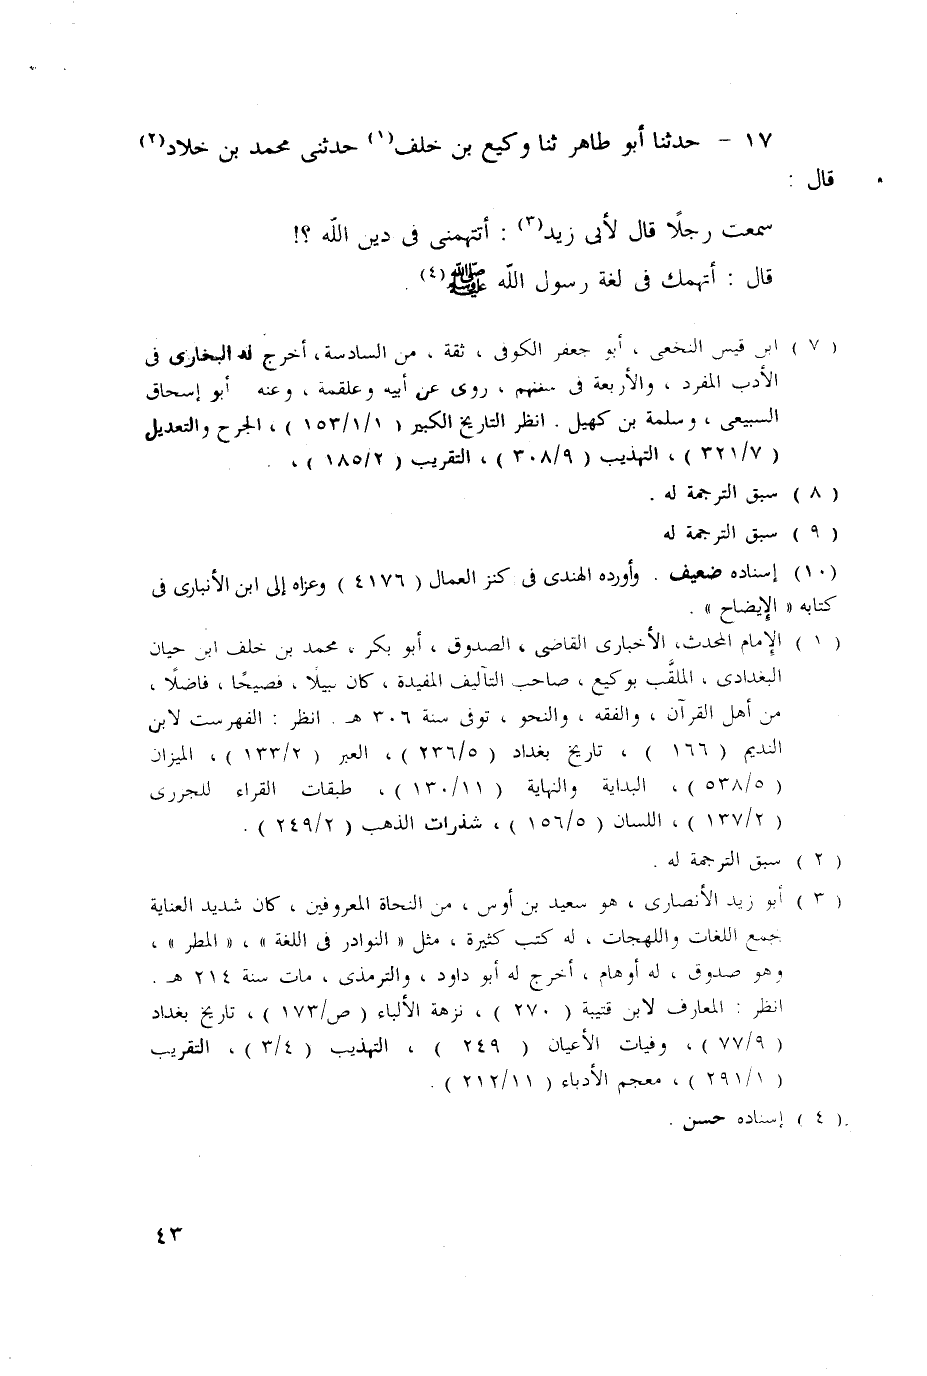 ١٧ – حدثنا أبو طاهر ثنا وكيع بن خلف(١) حدثنى محمد بن خلاد(٢)
قال :
سمعت رجلًا قال لأبى زيد(٣) : أتتهمنى فى دين الله ؟!
قال : أتهمك فى لغة رسول الله ﷺ(٤) .
( ٧ ) ابن قيس النخعى ، أبو جعفر الكوفى ، ثقة ، من السادسة، أخرج له البخارى فى
الأدب المفرد ، والأربعة فى سننهم ، روى عن أبيه وعلقمة ، وعنه أبو إسحاق
السبيعى ، وسلمة بن كهيل . انظر التاريخ الكبير ( ١٥٣/١/١ ) ، الجرح والتعديل
( ٣٢١/٧ ) ، التهذيب ( ٣٠٨/٩ ) ، التقريب ( ١٨٥/٢ ) ، .
( ٨ ) سبق الترجمة له .
( ٩ ) سبق الترجمة له
(١٠) إسناده ضعيف . وأورده الهندى فى كنز العمال ( ٤١٧٦ ) وعزاه إلى ابن الأنبارى فى
كتابه « الإيضاح » .
( ١ ) الإمام المحدث، الأخبارى القاضى ، الصدوق ، أبو بكر ، محمد بن خلف ابن حيان
البغدادى ، الملقَّب بوكيع ، صاحب التآليف المفيدة ، كان نبيلًا ، فصيحًا ، فاضلًا ،
من أهل القرآن ، والفقه ، والنحو ، توفى سنة ٣٠٦ هـ . انظر : الفهرست لابن
النديم ( ١٦٦ ) ، تاريخ بغداد ( ٢٣٦/٥ ) ، العبر ( ١٣٣/٢ ) ، الميزان
( ٥٣٨/٥ ) ، البداية والنهاية ( ١٣٠/١١ ) ، طبقات القراء للجزرى
( ١٣٧/٢ ) ، اللسان ( ١٥٦/٥ ) ، شذرات الذهب ( ٢٤٩/٢ ) .
( ٢ ) سبق الترجمة له .
( ٣ ) أبو زيد الأنصارى ، هو سعيد بن أوس ، من النحاة المعروفين ، كان شديد العناية
بجمع اللغات واللهجات ، له كتب كثيرة ، مثل « النوادر فى اللغة » ، « المطر » ،
وهو صدوق ، له أوهام ، أخرج له أبو داود ، والترمذى ، مات سنة ٢١٤ هـ .
انظر : المعارف لابن قتيبة ( ٢٧٠ ) ، نزهة الألباء ( ص/١٧٣ ) ، تاريخ بغداد
( ٧٧/٩ ) ، وفيات الأعيان ( ٢٤٩ ) ، التهذيب ( ٣/٤ ) ، التقريب
( ٢٩١/١ ) ، معجم الأدباء ( ٢١٢/١١ ) .
( ٤ ) إسناده حسن .
٤٣